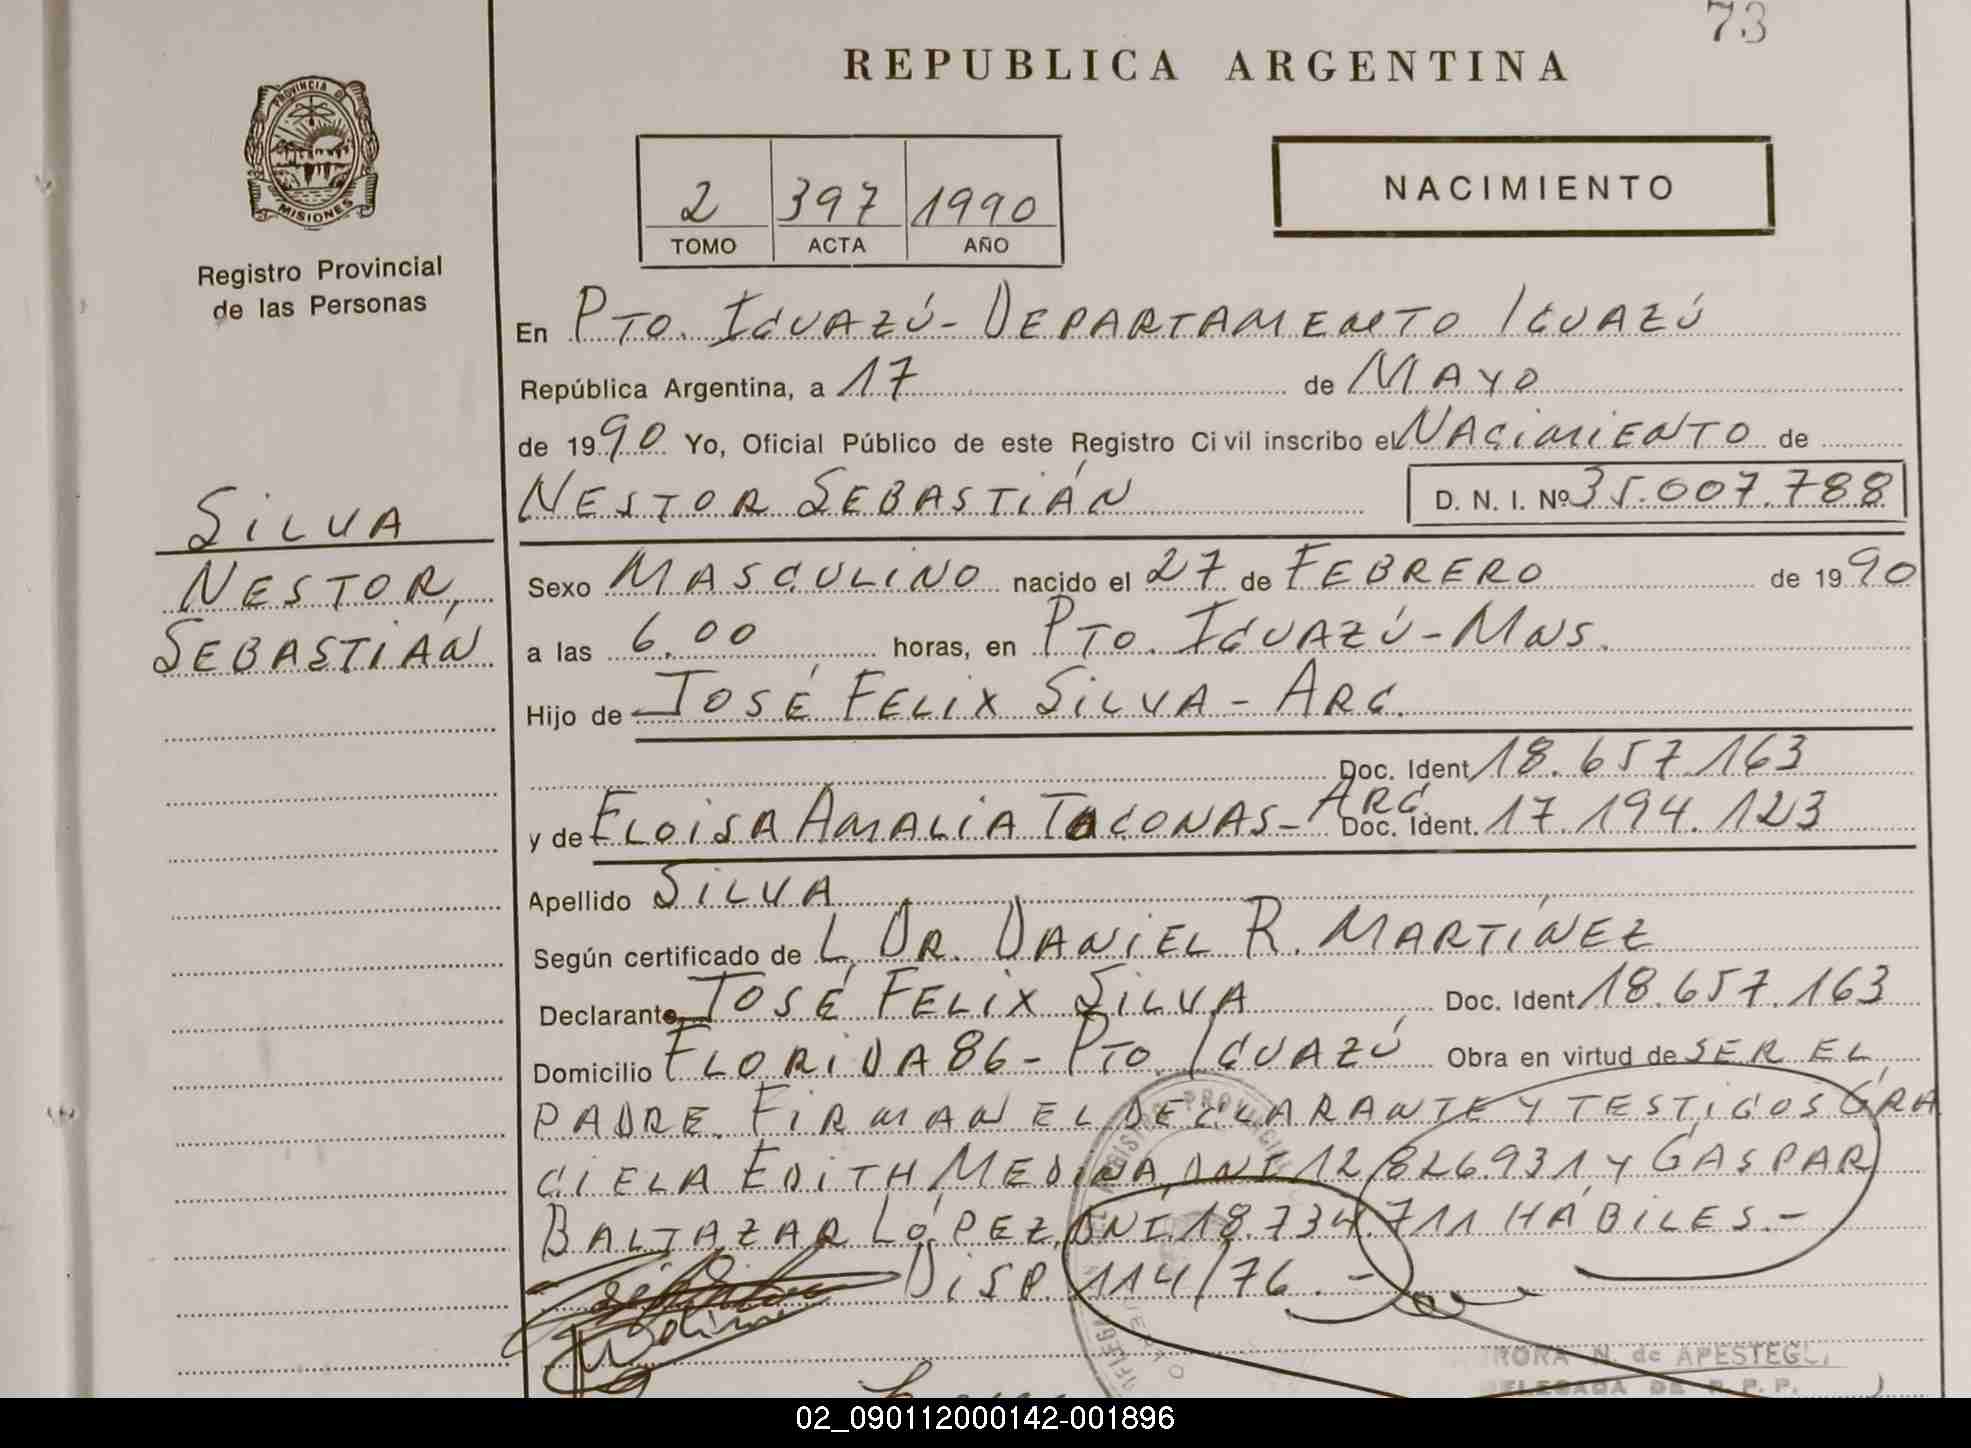 73
REPUBLICA ARGENTINA
PROVINCIA DE
MISIONES
Registro Provincial
de las Personas
2 397 1990
TOMO ACTA AÑO
NACIMIENTO
En PTO. IGUAZÚ - DEPARTAMENTO IGUAZÚ
República Argentina, a 17 de MAYO
de 1990 Yo, Oficial Público de este Registro Civil inscribo el NACIMIENTO de
NESTOR SEBASTIÁN D. N. I. Nº 35.007.788
SILVA
NESTOR,
SEBASTIÁN
Sexo MASCULINO nacido el 27 de FEBRERO de 1990
a las 6.00 horas, en PTO. IGUAZÚ - MNS.
Hijo de JOSÉ FELIX SILVA - ARG.
Doc. Ident 18.657.163
y de ELOISA AMALIA TACONAS - ARG. Doc. Ident. 17.194.123
Apellido SILVA
Según certificado de L. DR. DANIEL R. MARTÍNEZ
Declarante JOSÉ FELIX SILVA Doc. Ident 18.657.163
Domicilio FLORIDA 86 - PTO. IGUAZÚ Obra en virtud de SER EL
PADRE. FIRMAN EL DECLARANTE Y TESTIGOS GRA
CIELA EDITH MEDINA, DNI 12.826.931 Y GASPAR
BALTAZAR LÓPEZ, DNI. 18.734.711 HÁBILES. -
DISP. 114/76. -
RORA N. de APESTEGUI
DELEGADA DE R. P. P.
02_090112000142-001896